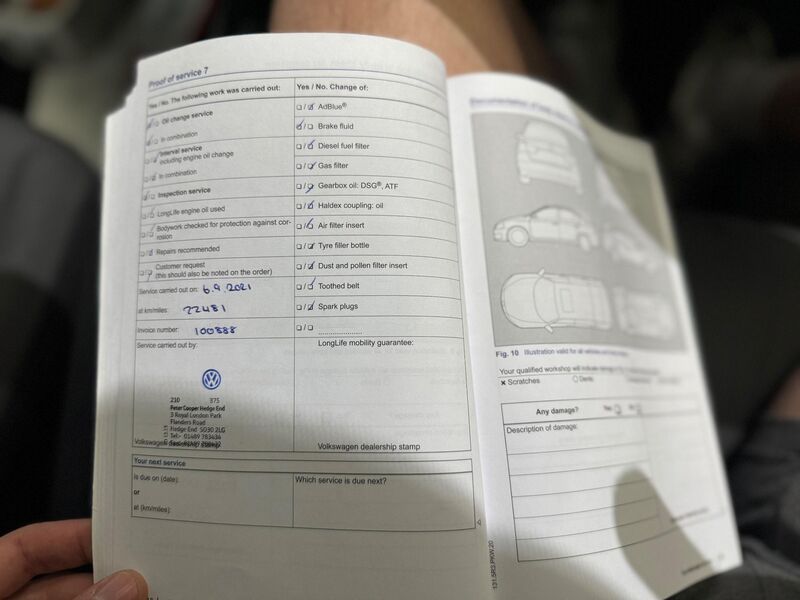 Proof of service 7
Yes / No. The following work was carried out:
☑ / ☐ Oil change service
☑ / ☐ In combination
☐ / ☑ Interval service
excluding engine oil change
☐ / ☑ In combination
☑ / ☐ Inspection service
☐ / ☑ LongLife engine oil used
☐ / ☑ Bodywork checked for protection against cor-
rosion
☐ / ☑ Repairs recommended
☐ / ☑ Customer request
(this should also be noted on the order)
Service carried out on: 6.9.2021
at km/miles: 22481
Invoice number: 100888
Service carried out by:
210 375
Peter Cooper Hedge End
3 Royal London Park
Flanders Road
Hedge End SO30 2LG
Tel:- 01489 783434
Volkswagen dealership stamp
Yes / No. Change of:
☐ / ☑ AdBlue®
☑ / ☐ Brake fluid
☐ / ☑ Diesel fuel filter
☐ / ☑ Gas filter
☐ / ☑ Gearbox oil: DSG®, ATF
☐ / ☑ Haldex coupling: oil
☐ / ☑ Air filter insert
☐ / ☑ Tyre filler bottle
☐ / ☑ Dust and pollen filter insert
☐ / ☑ Toothed belt
☐ / ☑ Spark plugs
☐ / ☐ ....................
LongLife mobility guarantee:
Volkswagen dealership stamp
Your next service
Is due on (date):
or
at (km/miles):
Which service is due next?
Fig. 10 Illustration valid for all vehicles
Your qualified workshop will indicate
× Scratches
○ Dents
Any damage? Yes ☐ No ☐
Description of damage:
131.5R3.PKW.20